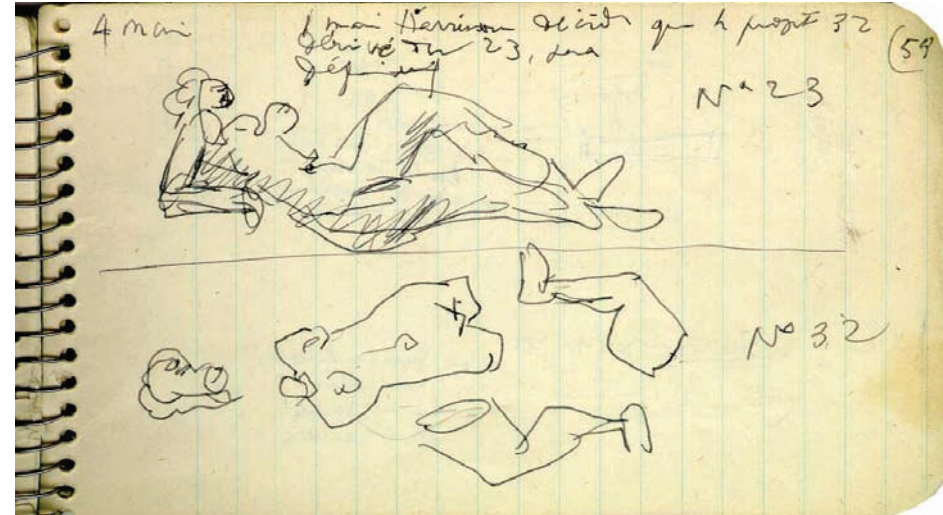 4 mai
1 mai Harrison décide que le projet 32
dérivé du 23, sera
définitif
(59
N° 23
N° 32